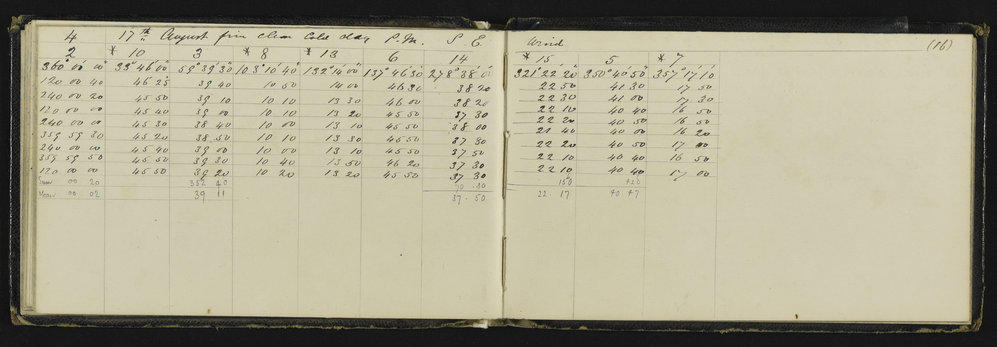 4 17th August fine clear Cold day P.M. S. E. Wind (16)
2 * 10 3 * 8 * 13 6 14 * 15 5 * 7
360° 00' 00" 33° 46' 00" 59° 39' 30" 103° 10' 40" 132° 14' 00" 137° 46' 30" 278° 38' 0" 321° 22' 20" 350° 40' 50" 357° 17' 10"
120 00 40 46 25 39 40 10 50 14 00 46 30 38 20 22 50 41 30 17 50
240 00 20 45 50 39 10 10 10 13 30 46 00 38 20 22 30 41 00 17 30
120 00 00 45 40 39 00 10 00 13 20 45 50 37 30 22 10 40 40 16 50
240 00 00 45 30 38 40 10 00 13 10 45 50 38 00 22 20 40 50 16 50
359 59 30 45 20 38 50 10 10 13 30 45 50 37 30 21 40 40 00 16 20
240 00 00 45 40 39 00 10 00 13 10 45 50 37 50 22 20 40 50 17 00
359 59 50 45 50 39 30 10 40 13 50 46 20 37 30 22 10 40 40 16 50
120 00 00 45 50 39 20 10 20 13 20 45 50 37 30 22 10 40 40 17 00
Sum 00 20 352 40 70 .30 150 420
Mean 00 02 39 11 37 . 50 22 . 17 40 47